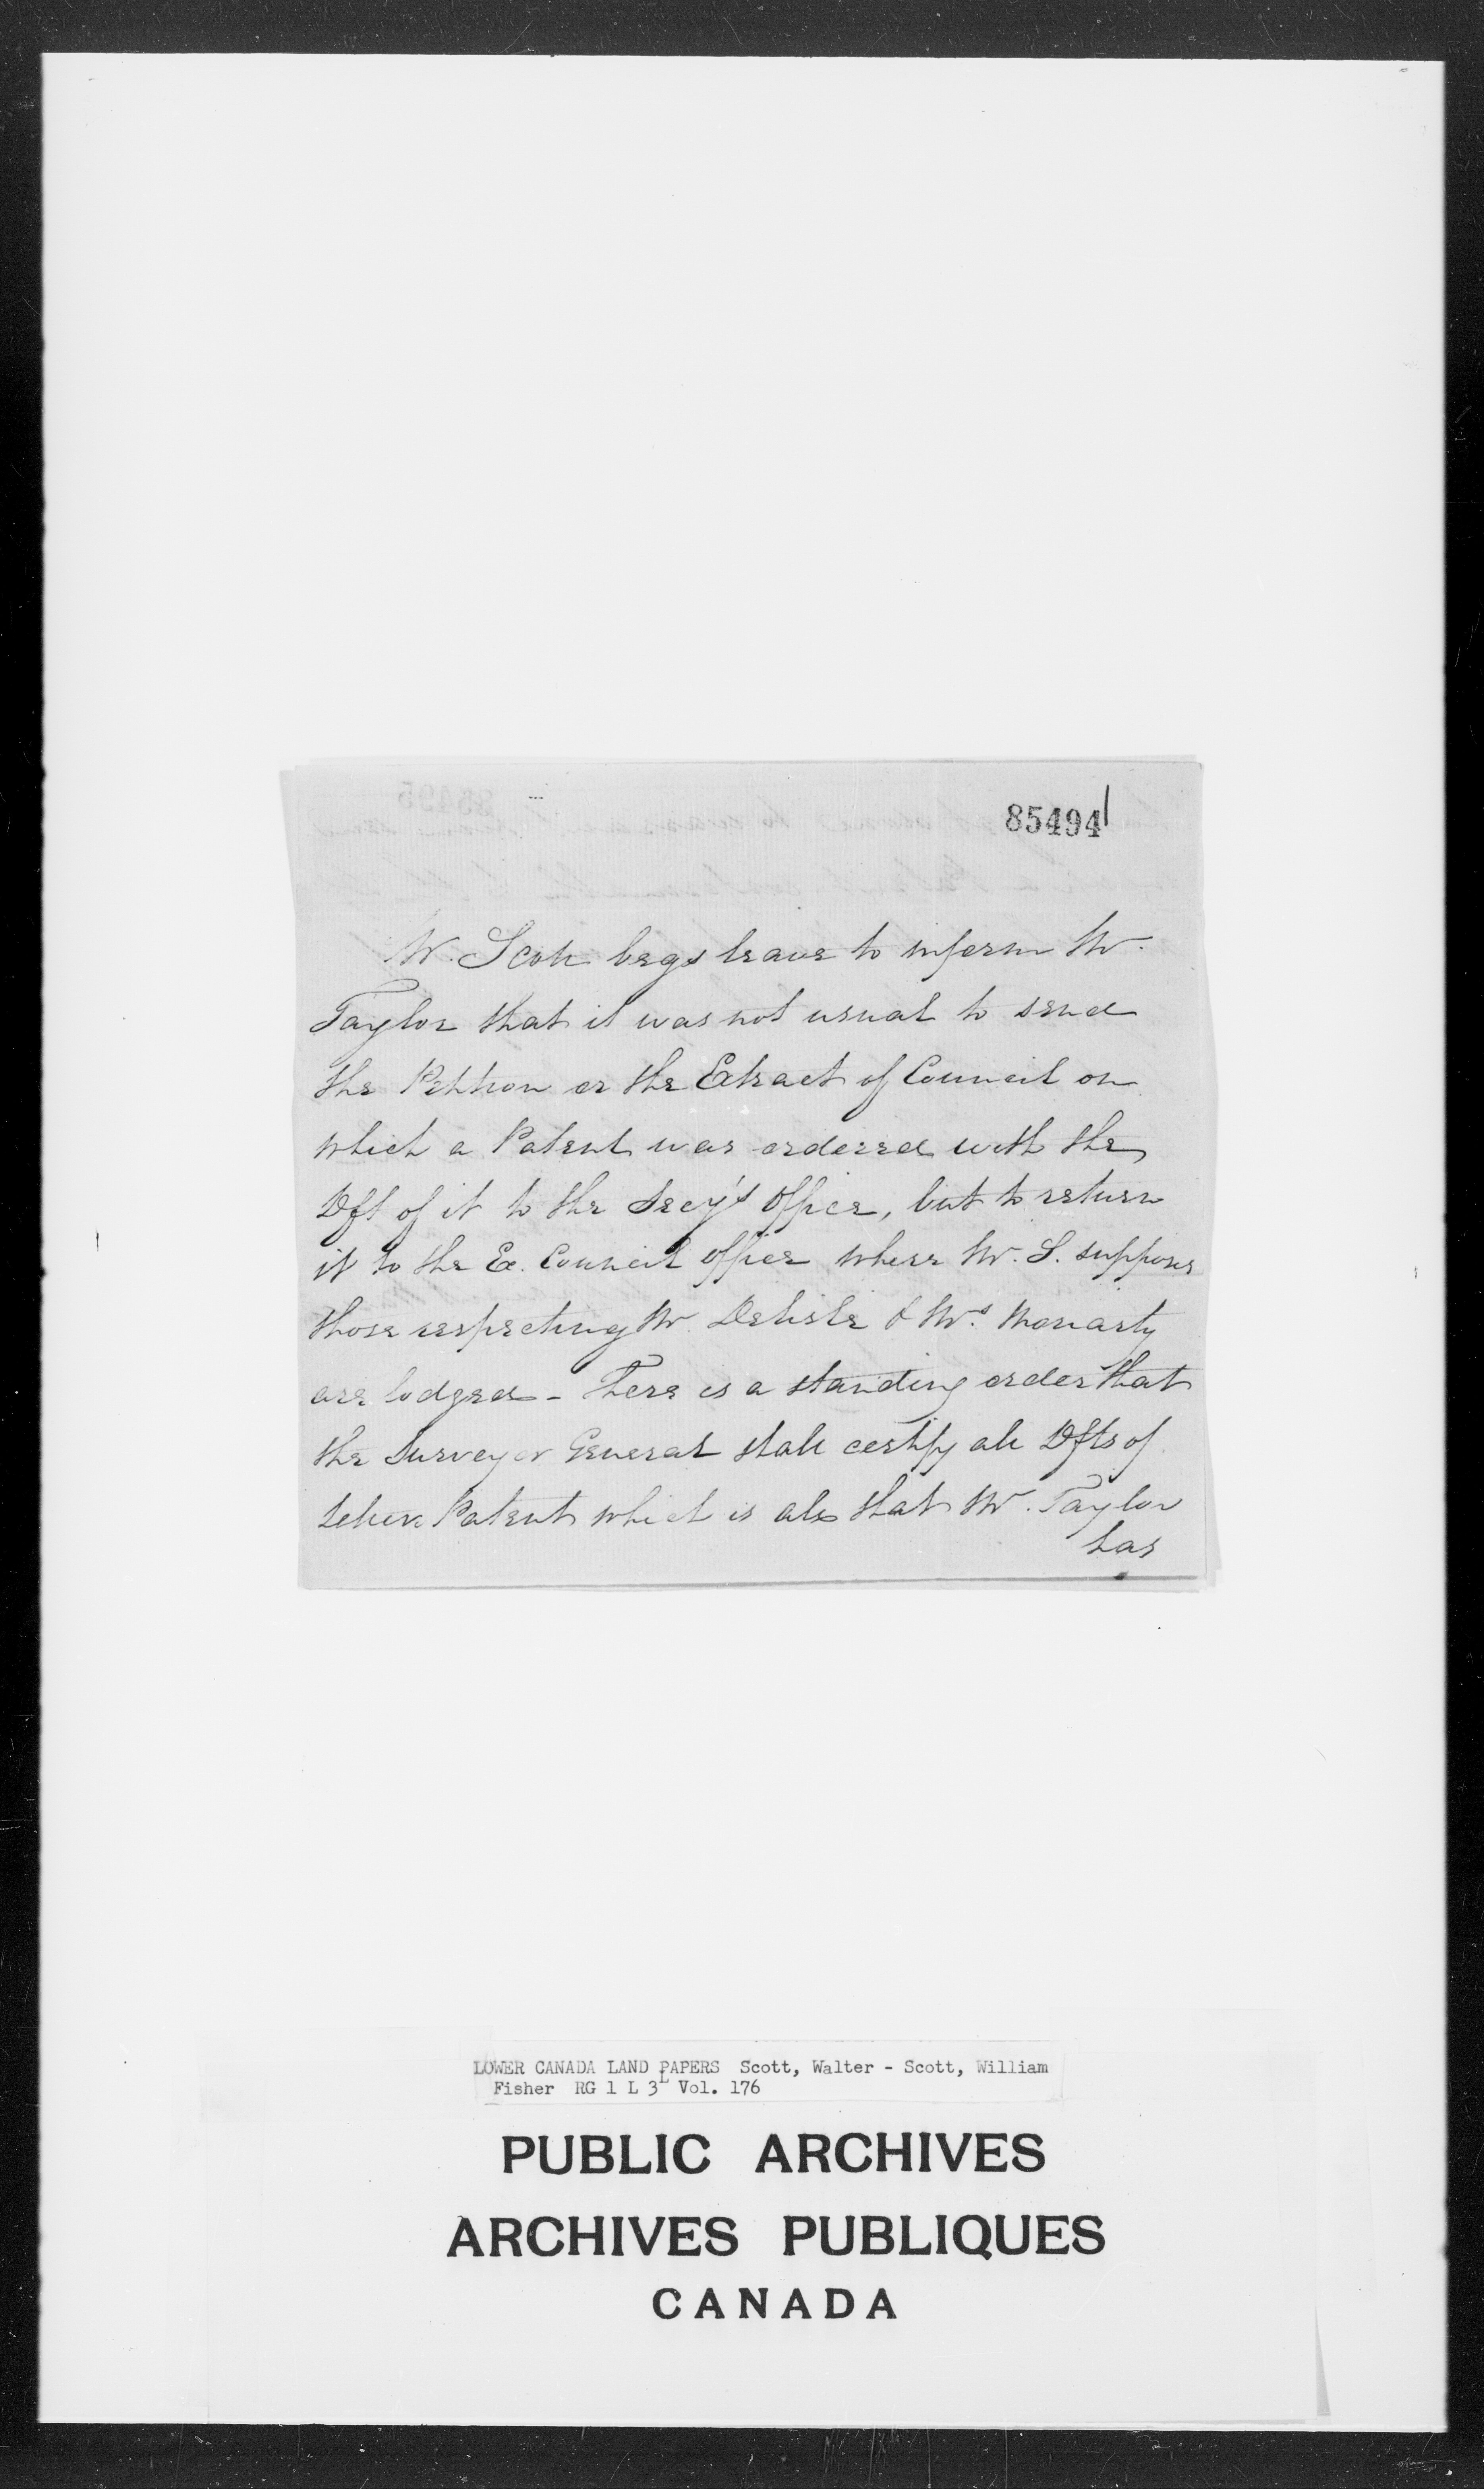 85494
Mr. Scott begs leave to inform Mr.
Taylor that it was not usual to send
the Petition or the Extract of Council on
which a Patent was ordered with the
Dft of it to the Secy's Office, but to return
it to the Ex. Council Office where Mr. S. supposes
those respecting Mr. Delisle & Mrs. Moriarty
are lodged - There is a standing order that
the Surveyor General shall certify all Dfts of
Patent which is all that Mr. Taylor
has
LOWER CANADA LAND PAPERS Scott, Walter - Scott, William
Fisher RG 1 L 3L Vol. 176
PUBLIC ARCHIVES
ARCHIVES PUBLIQUES
CANADA